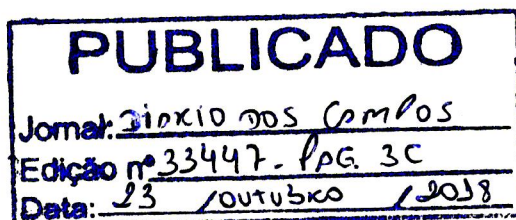 PUBLICADO
Jornal: DIÁRIO DOS CAMPOS
Edição nº 33447 - PÁG. 3C
Data: 23 / OUTUBRO / 2018